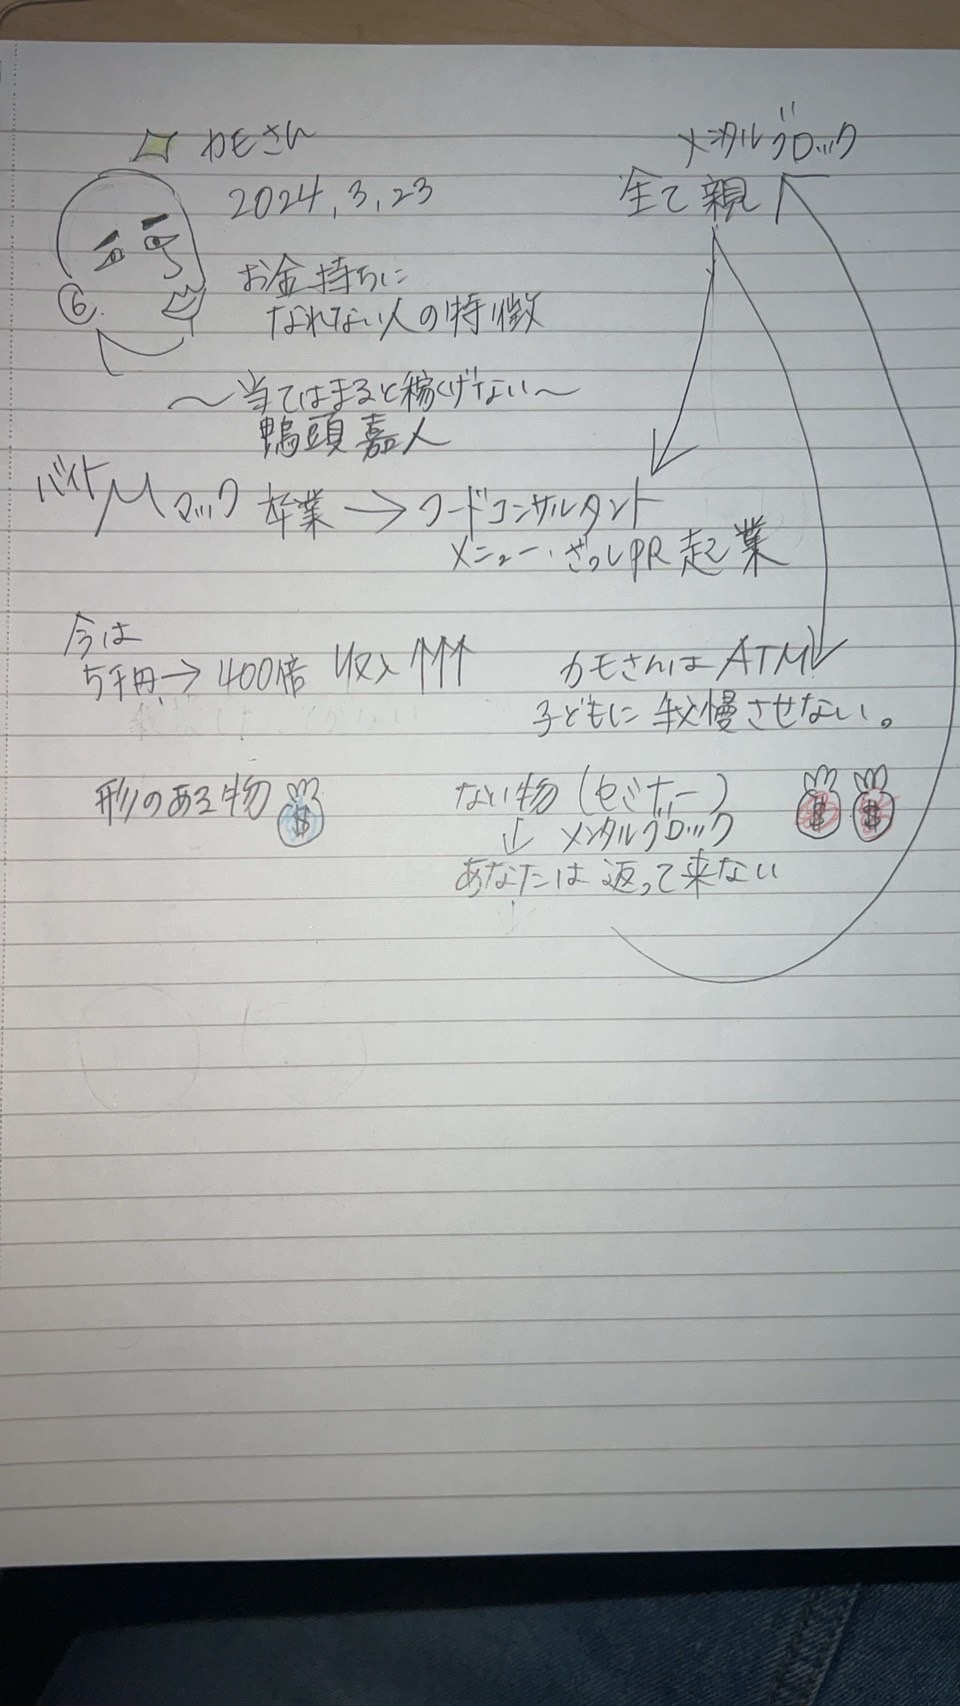 カモさん
2024,3,23
お金持ちに
なれない人の特徴
～当てはまると稼げない～
鴨頭嘉人
メンタルブロック
全て親
バイト M マック 卒業 → フードコンサルタント
メニュー・ざっしPR 起業
今は
5千円→400倍 収入↑↑↑
カモさんはATM
子どもに我慢させない。
形のある物 $
ない物(セミナー) $ $
↓ メンタルブロック
あなたは返って来ない